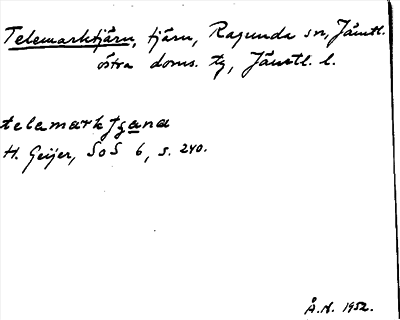 Telemarktjärn, tjärn, Ragunda sn, Jämtl.
östra doms. tg, Jämtl. l.
telemarktjana
H. Geijer, SoS 6, s. 240.
Å.N. 1952.